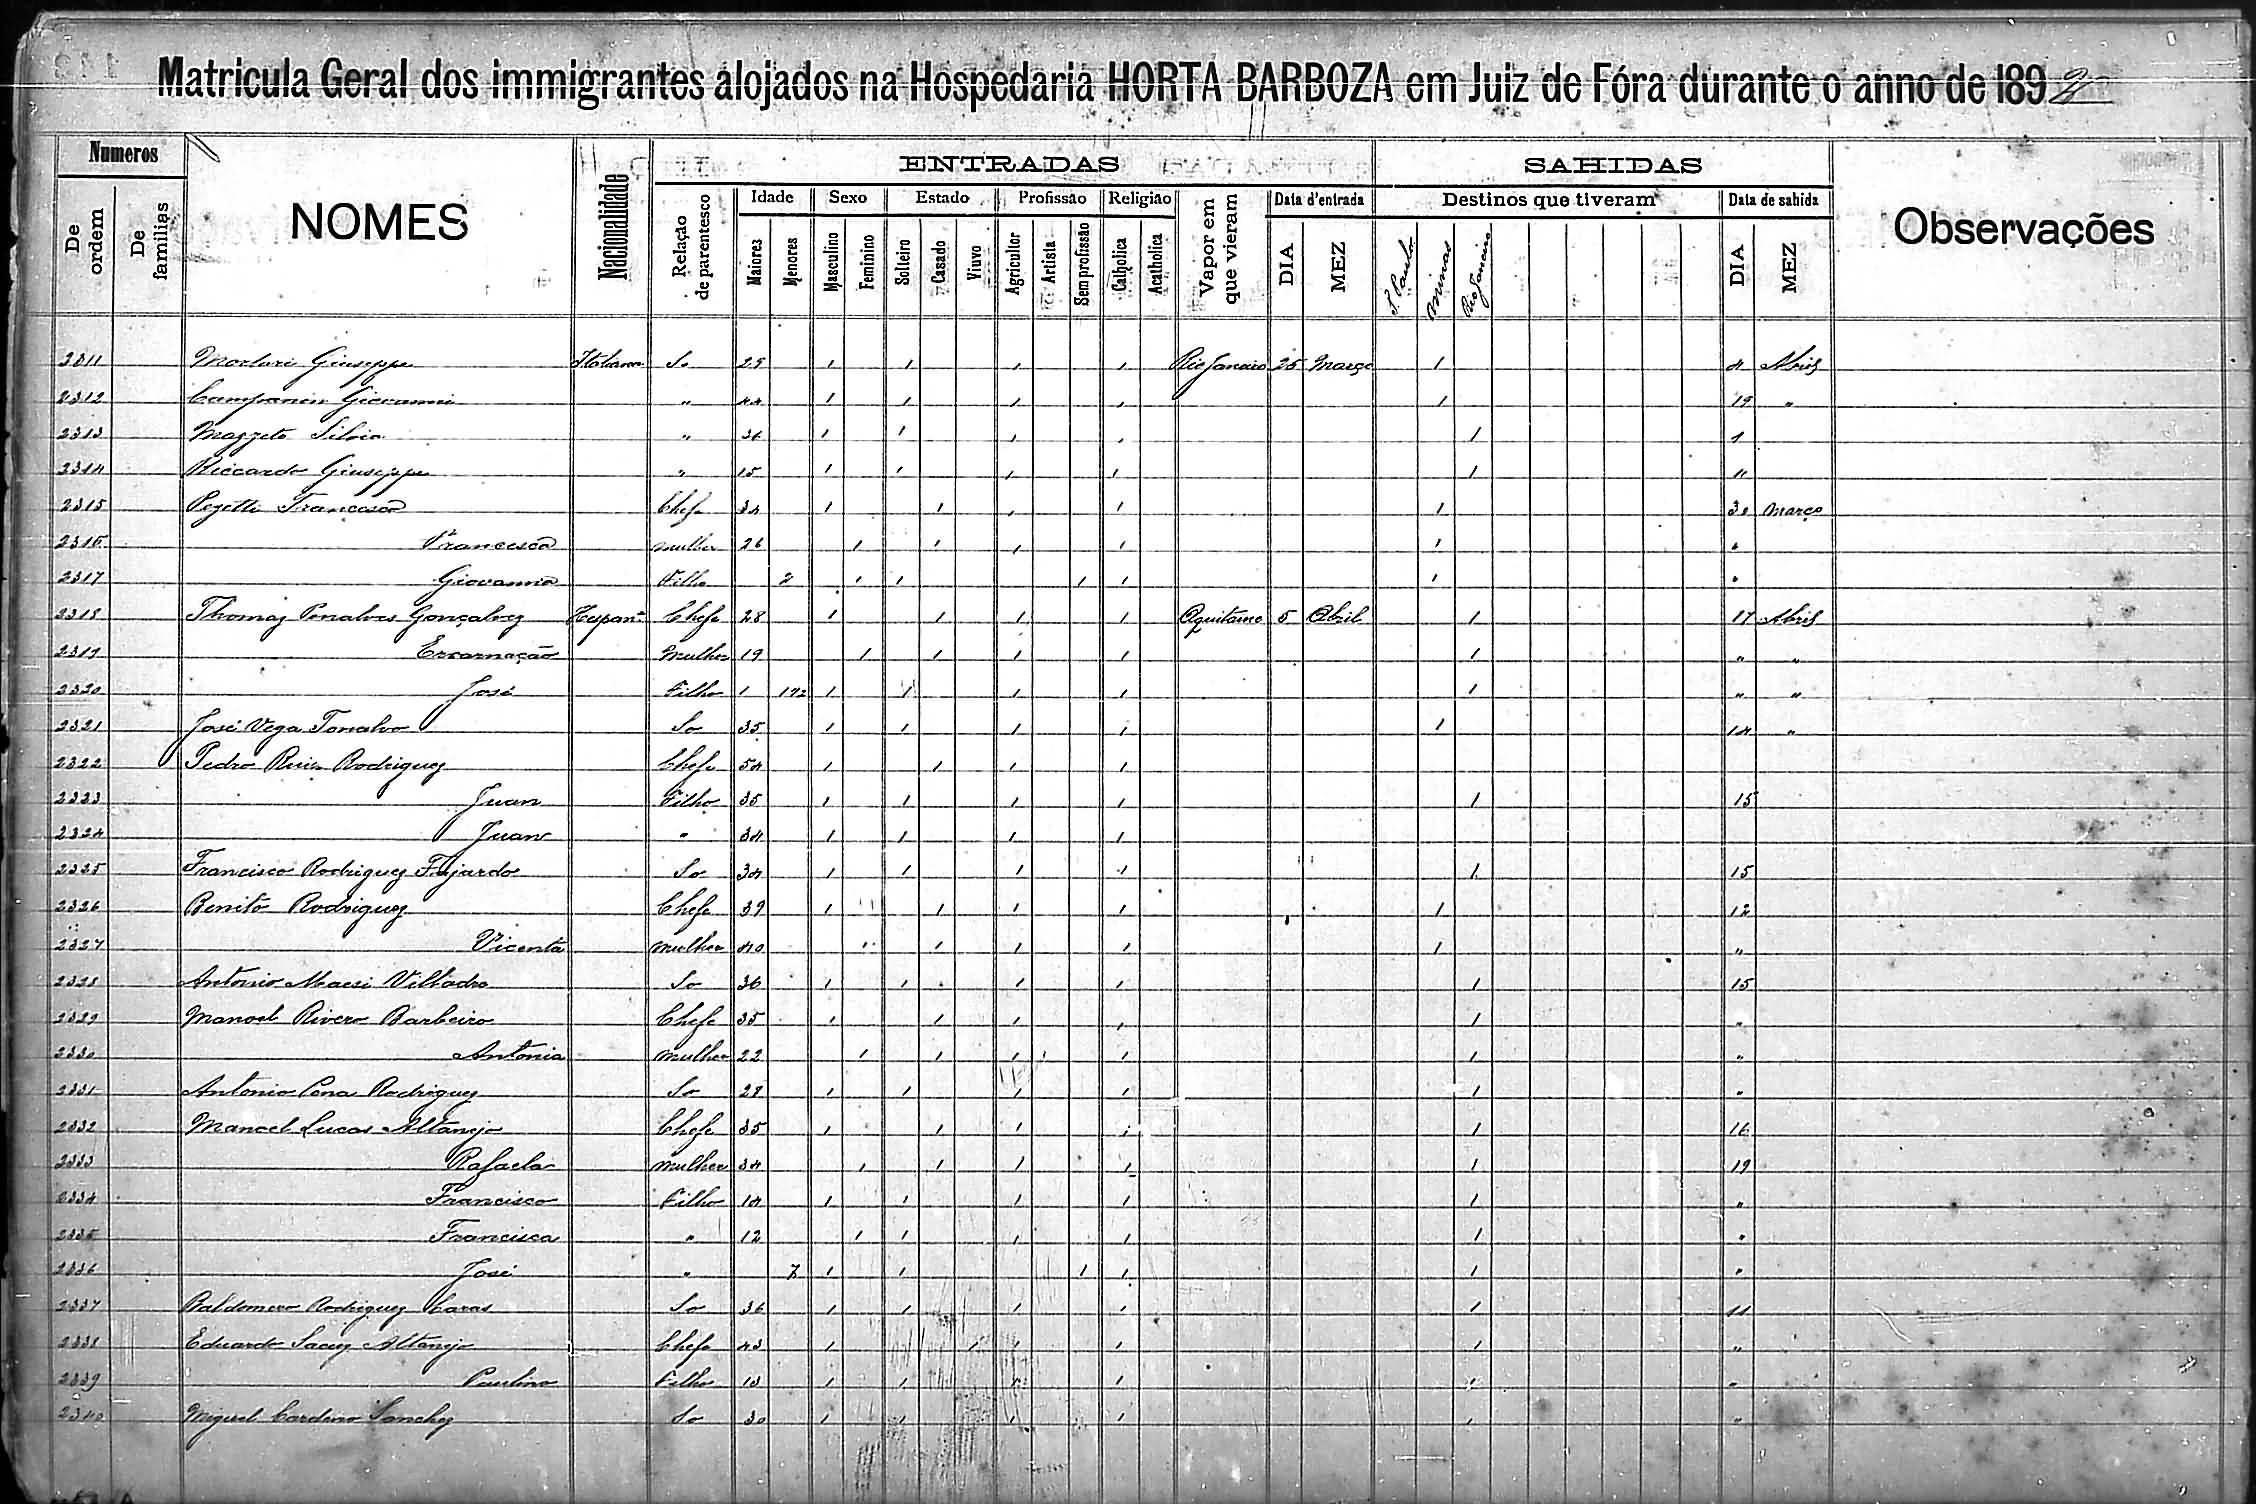 Matricula Geral dos immigrantes alojados na Hospedaria HORTA BARBOZA em Juiz de Fóra durante o anno de 189
Numeros
ENTRADAS
SAHIDAS
De ordem De familias NOMES Nacionalidade Relação de parentesco Idade Sexo Estado Profissão Religião Vapor em que vieram Data d'entrada Destinos que tiveram Data de sahida Observações
Maiores Menores Masculino Feminino Solteiro Casado Viuvo Agricultor Artista Sem profissão Catholica Acatholica DIA MEZ S. Paulo Minas Rio Janeiro DIA MEZ
2311 Giuseppe Italiana So 1 1 1 1 Rio Janeiro 25 Março 1 4 Abril
2312 Giovanni " 44 1 1 1 1 1 19 "
2313 Mazzeto Silvio " 1 1 1 1 1
2314 Riccardo Giuseppe " 15 1 1 1 1 1 "
2315 Francesco Chefe 34 1 1 1 1 1 30 Março
2316 Francesca mulher 26 1 1 1 1 1 "
2317 Giovanna Filho 2 1 1 1 1 1 "
2318 Thomaz Penalves Gonçalvez Chefe 28 1 1 1 1 Aquitaine 5 Abril 1 17 Abril
2319 Encarnação Mulher 19 1 1 1 1 1 " "
2320 José Filho 1 1/2 1 1 1 1 1 " "
2321 José Vega So 35 1 1 1 1 1 14 "
2322 Pedro Ruiz Rodriguez Chefe 54 1 1 1 1
2323 Juan Filho 35 1 1 1 1 1 15
2324 Juan " 34 1 1 1 1
2325 Francisco Rodriguez Fajardo So 34 1 1 1 1 1 15
2326 Benito Rodriguez Chefe 39 1 1 1 1 1 12
2327 Vicenta mulher 40 1 1 1 1 1 "
2328 Antonio So 36 1 1 1 1 1 15
2329 Manoel Rivero Barbeiro Chefe 35 1 1 1 1 1 "
2330 Antonia mulher 22 1 1 1 1 1 "
2331 Antonio Pena Rodriguez So 28 1 1 1 1 1 "
2332 Manoel Lucas Altanejo Chefe 35 1 1 1 1 1 16
2333 Rafaela mulher 34 1 1 1 1 1 19
2334 Francisco Filho 14 1 1 1 1 1 "
2335 Francisca " 12 1 1 1 1 1 "
2336 José " 7 1 1 1 1 1 "
2337 Baldomero Rodriguez Caras So 36 1 1 1 1 1 11
2338 Eduardo Altanejo Chefe 43 1 1 1 1 1 "
2339 Paulino Filho 13 1 1 1 1 1 "
2340 Miguel Cardeno Sanchez So 30 1 1 1 1 1 "